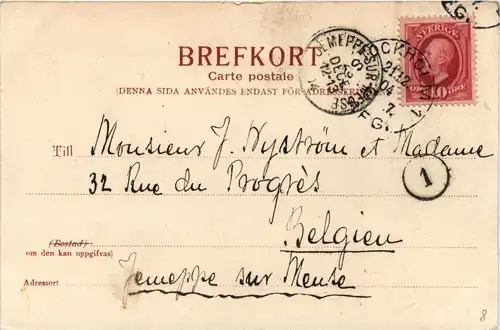 BREFKORT
Carte postale
(DENNA SIDA ANVÄNDES ENDAST FÖR ADRESSERING)
SVERIGE
10 ÖRE
JEMEPPE-SUR-
DECE
CKHOLM 1
21 12 04
Till Monsieur J. Nyström et Madame
32 Rue du Progrès
1
Belgien
(Bostad)
om den kan uppgifvas)
Adressort Jemeppe sur Meuse
8